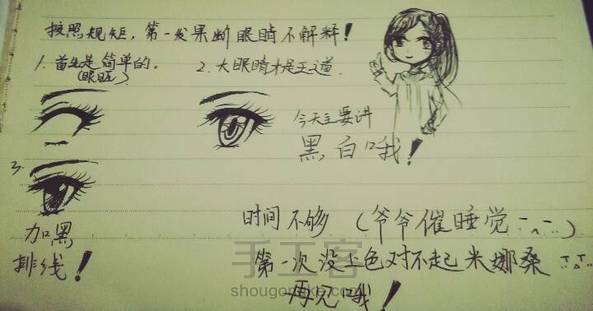 按照规矩，第一发果断眼睛不解释！
1. 首先是简单的。
（眼眶）
2. 大眼睛才是王道
今天主要讲
黑白哦！
3.
加黑
排线！
时间不够（爷爷催睡觉
第一次没上色对不起米娜桑
再见哦！
手工客
shougongke.com